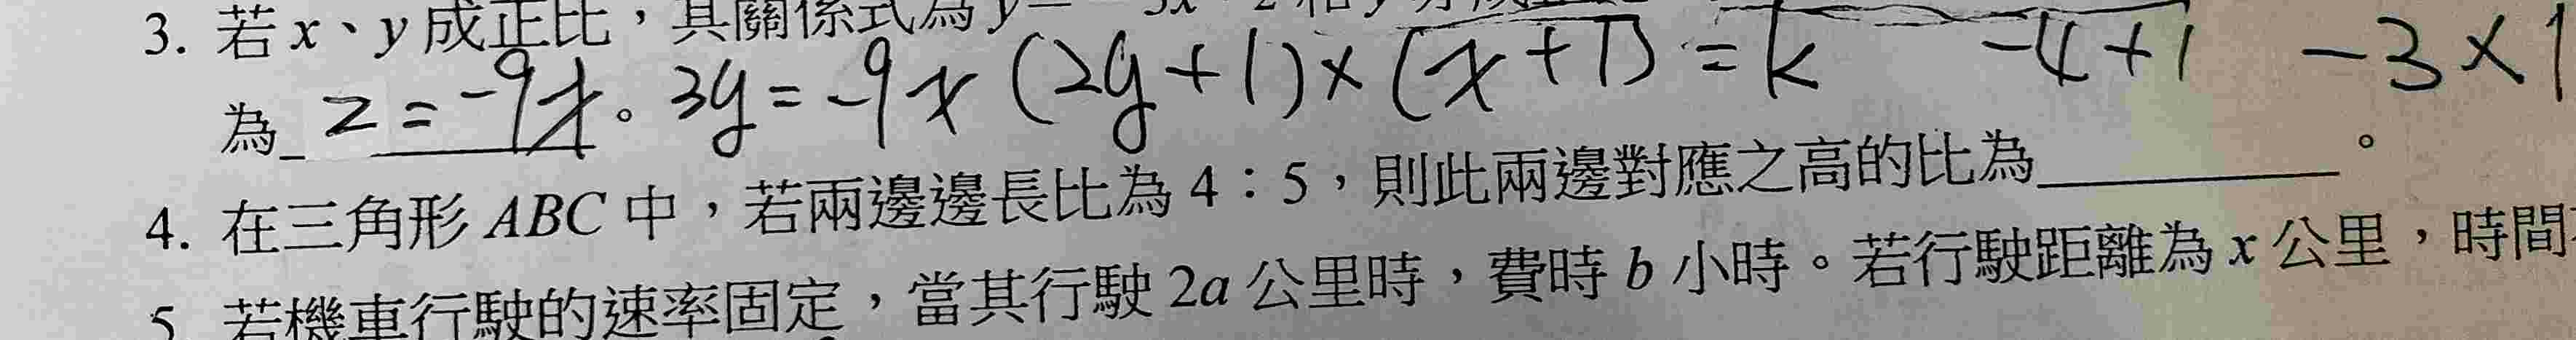 3. 若 x、y 成正比，其關係式為 y
為 z = -9x。 3y = -9x (2y+1)×(x+1) = k -4+1 -3×1
4. 在三角形 ABC 中，若兩邊邊長比為 4：5，則此兩邊對應之高的比為＿＿＿＿。
5. 若機車行駛的速率固定，當其行駛 2a 公里時，費時 b 小時。若行駛距離為 x 公里，時間